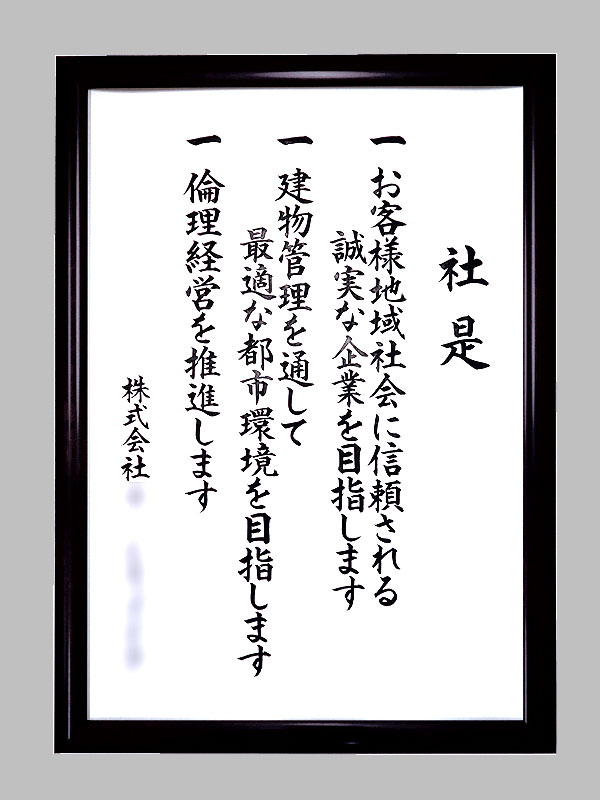 社是
一 お客様地域社会に信頼される
誠実な企業を目指します
一 建物管理を通して
最適な都市環境を目指します
一 倫理経営を推進します
株式会社